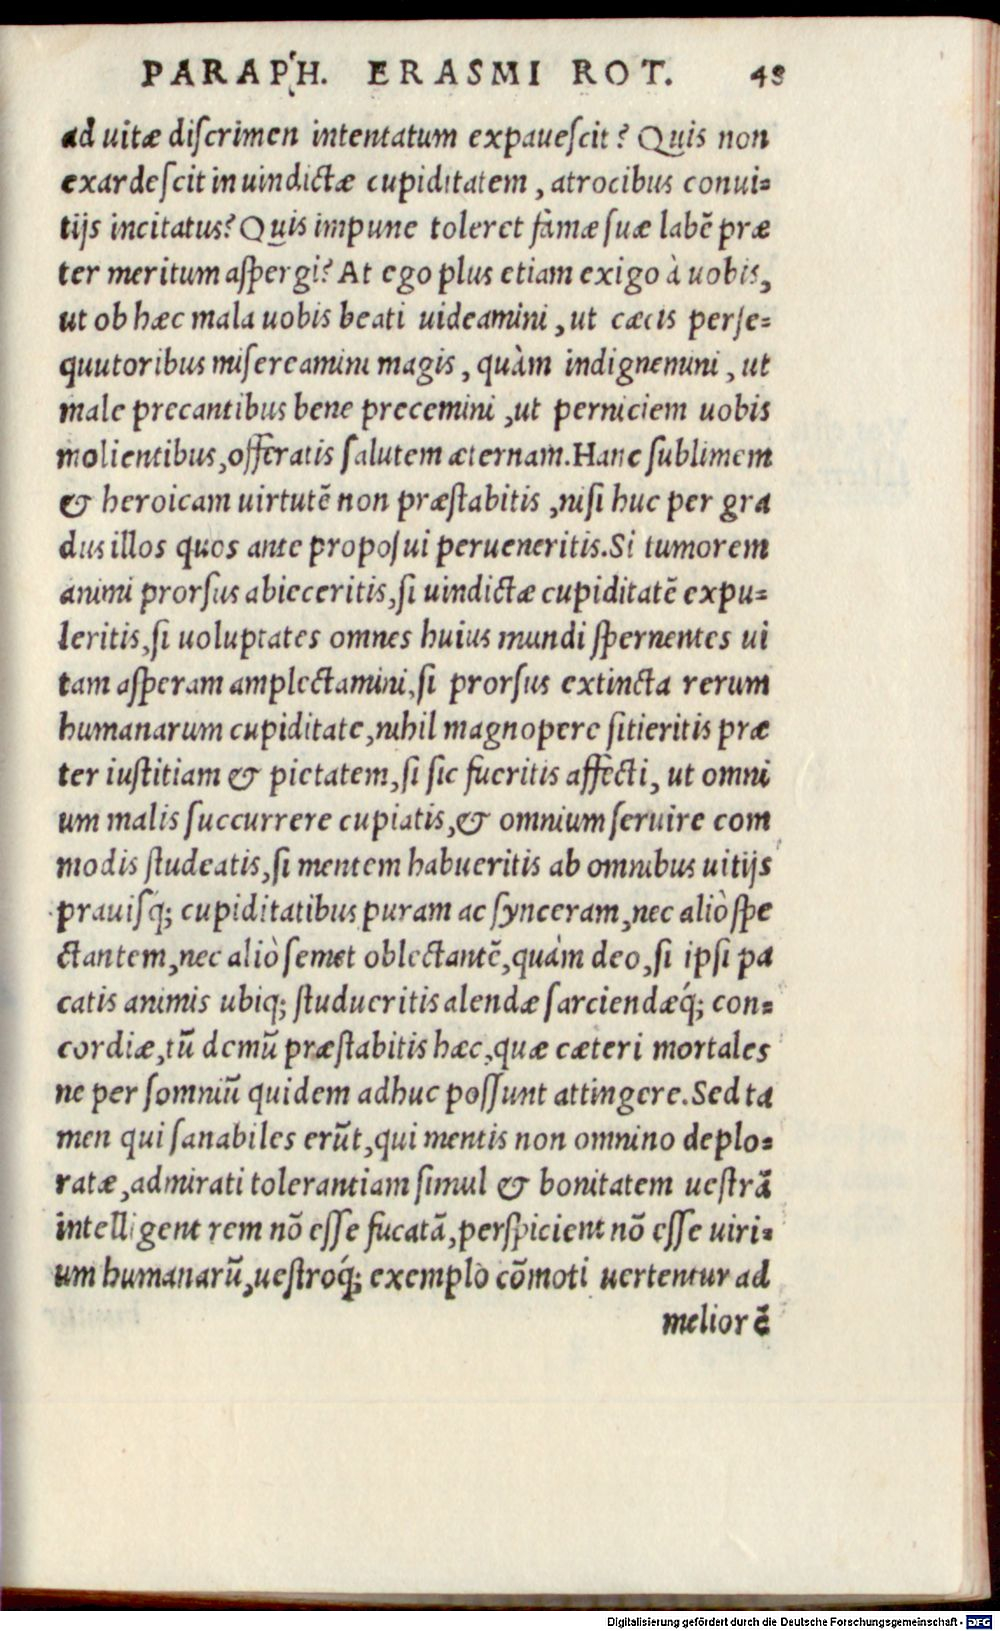 PARAPH. ERASMI ROT. 48
ad uitæ diſcrimen intentatum expaueſcit? Quis non
exardeſcit in uindictæ cupiditatem, atrocibus conui-
tijs incitatus? Quis impune toleret famæ ſuæ labẽ præ
ter meritum aſpergi? At ego plus etiam exigo à uobis,
ut ob hæc mala uobis beati uideamini, ut cæcis perſe-
quutoribus miſereamini magis, quàm indignemini, ut
male precantibus bene precemini, ut perniciem uobis
molientibus, offeratis ſalutem æternam. Hanc ſublimem
& heroicam uirtutẽ non præſtabitis, niſi huc per gra
dus illos quos ante propoſui perueneritis. Si tumorem
animi prorſus abieceritis, ſi uindictæ cupiditatẽ expu-
leritis, ſi uoluptates omnes huius mundi ſpernentes ui
tam aſperam amplectamini, ſi prorſus extincta rerum
humanarum cupiditate, nihil magnopere ſitieritis præ
ter iuſtitiam & pietatem, ſi ſic fueritis affecti, ut omni
um malis ſuccurrere cupiatis, & omnium ſeruire com
modis ſtudeatis, ſi mentem habueritis ab omnibus uitijs
prauiſq́; cupiditatibus puram ac ſynceram, nec aliò ſpe
ctantem, nec aliò ſemet oblectantẽ, quàm deo, ſi ipſi pa
catis animis ubiq; ſtudueritis alendæ ſarciendæq́; con-
cordiæ, tũ demũ præſtabitis hæc, quæ cæteri mortales
ne per ſomniũ quidem adhuc poſſunt attingere. Sed ta
men qui ſanabiles erũt, qui mentis non omnino deplo-
ratæ, admirati tolerantiam ſimul & bonitatem ueſtrã
intelligent rem nõ eſſe fucatã, perſpicient nõ eſſe uiri-
um humanarũ, ueſtroq́; exemplo cõmoti uertentur ad
meliorẽ
Digitalisierung gefördert durch die Deutsche Forschungsgemeinschaft - DFG